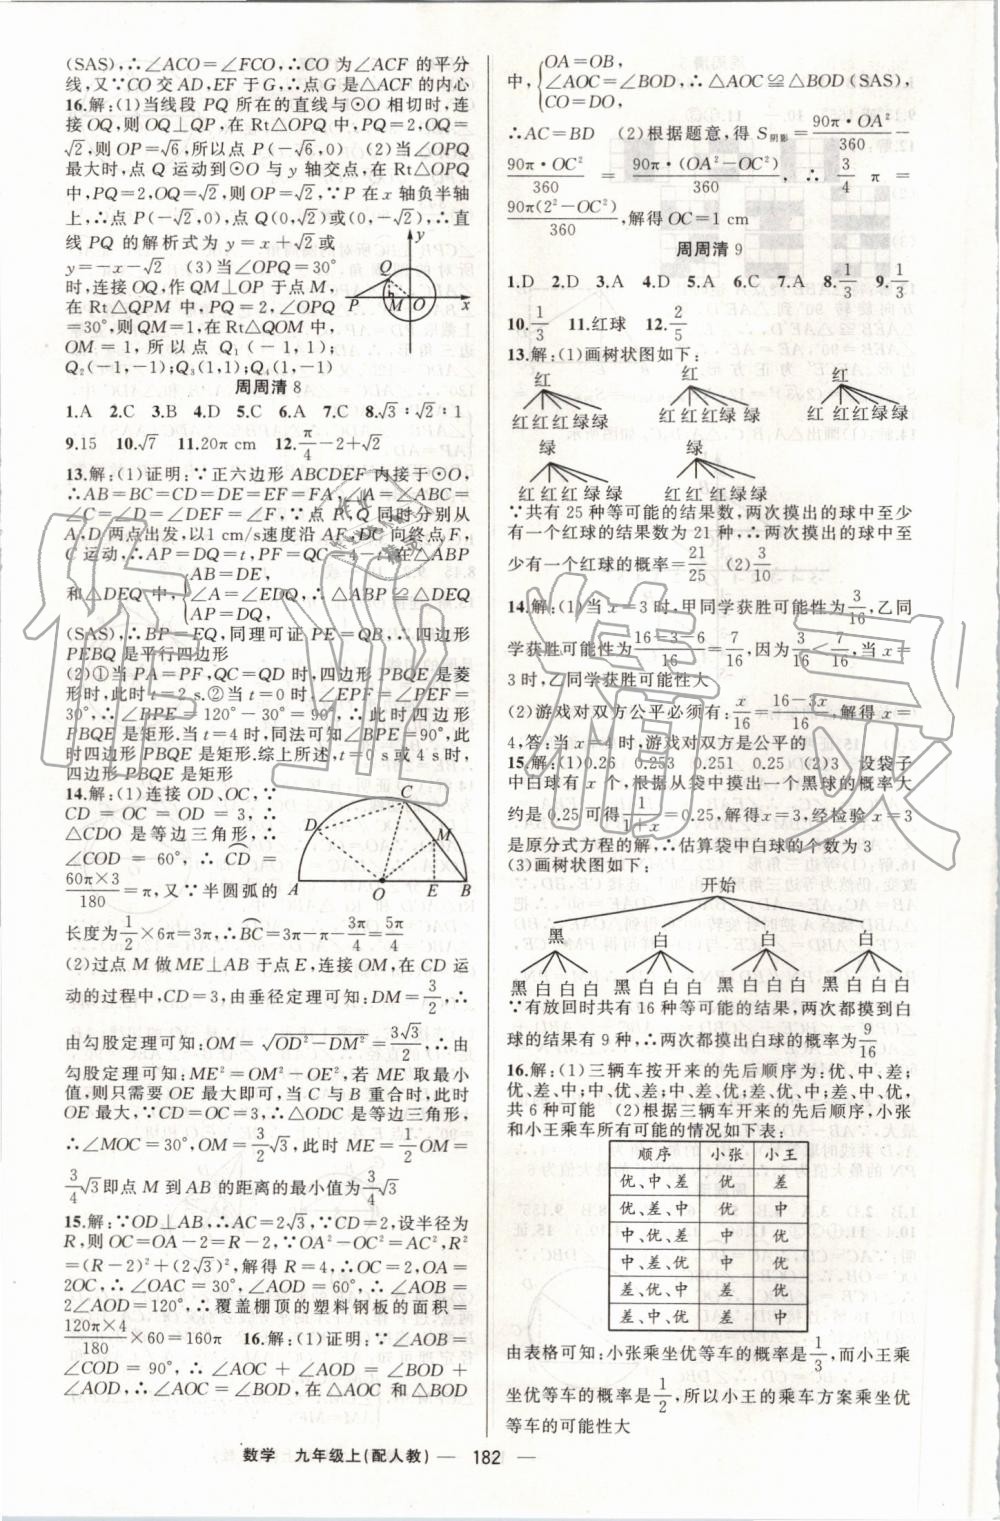 (SAS),∴∠ACO=∠FCO,∴CO为∠ACF的平分
线,又∵CO交AD,EF于G,∴点G是△ACF的内心
16.解:(1)当线段PQ所在的直线与⊙O相切时,连
接OQ,则OQ⊥QP,在Rt△OPQ中,PQ=2,OQ=
√2,则OP=√6,所以点P(-√6,0) (2)当△OPQ
最大时,点Q运动到⊙O与y轴交点,在Rt△OPQ
中,PQ=2,OQ=√2,则OP=√2,∵P在x轴负半轴
上,∴点P(-√2,0),点Q(0,√2)或(0,-√2),∴直
线PQ的解析式为y=x+√2或
y=-x-√2 (3)当∠OPQ=30°
时,连接OQ,作QM⊥OP于点M,
在Rt△QPM中,PQ=2,∠OPQ
=30°,则QM=1,在Rt△QOM中,
OM=1,所以点Q₁(-1,1);
Q₂(-1,-1);Q₃(1,1);Q₄(1,-1)
y
Q
P M O x
周周清8
1.A 2.C 3.B 4.D 5.C 6.A 7.C 8.√3∶√2∶1
9.15 10.√7 11.20π cm 12.π/4-2+√2
13.解:(1)证明:∵正六边形ABCDEF内接于⊙O,
∴AB=BC=CD=DE=EF=FA,∠A=∠ABC=
∠C=∠D=∠DEF=∠F,∵点P,Q同时分别从
A,D两点出发,以1 cm/s速度沿AF,DC向终点F,
C运动,∴AP=DQ=t,PF=QC=4-t,在△ABP
和△DEQ中,{AB=DE,
∠A=∠EDQ,
AP=DQ,
∴△ABP≌△DEQ
(SAS),∴BP=EQ,同理可证PE=QB,∴四边形
PEBQ是平行四边形
(2)①当PA=PF,QC=QD时,四边形PBQE是菱
形时,此时t=2 s.②当t=0时,∠EPF=∠PEF=
30°,∴∠BPE=120°-30°=90°,∴此时四边形
PBQE是矩形.当t=4时,同法可知∠BPE=90°,此
时四边形PBQE是矩形.综上所述,t=0 s或4 s时,
四边形PBQE是矩形
14.解:(1)连接OD、OC,∵
CD=OC=OD=3,∴
△CDO是等边三角形,∴
∠COD=60°,∴CD⌢=
60π×3/180=π,又∵半圆弧的
C
D M
A O E B
长度为1/2×6π=3π,∴BC⌢=3π-π-3π/4=5π/4
(2)过点M做ME⊥AB于点E,连接OM,在CD运
动的过程中,CD=3,由垂径定理可知:DM=3/2,∴
由勾股定理可知:OM=√(OD²-DM²)=3√3/2,∴由
勾股定理可知:ME²=OM²-OE²,若ME取最小
值,则只需要OE最大即可,当C与B重合时,此时
OE最大,∵CD=OC=3,∴△ODC是等边三角形,
∴∠MOC=30°,OM=3/2√3,此时ME=1/2OM=
3/4√3即点M到AB的距离的最小值为3/4√3
15.解:∵OD⊥AB,∴AC=2√3,∵CD=2,设半径为
R,则OC=OA-2=R-2,∵OA²-OC²=AC²,R²
=(R-2)²+(2√3)²,解得R=4,∴OC=2,OA=
2OC,∴∠OAC=30°,∠AOD=60°,∴∠AOB=
2∠AOD=120°,∴覆盖棚顶的塑料钢板的面积=
120π×4/180×60=160π 16.解:(1)证明:∵∠AOB=
∠COD=90°,∴∠AOC+∠AOD=∠BOD+
∠AOD,∴∠AOC=∠BOD,在△AOC和△BOD
中,{OA=OB,
∠AOC=∠BOD,
CO=DO,
∴△AOC≌△BOD(SAS),
∴AC=BD (2)根据题意,得S阴影=90π·OA²/360-
90π·OC²/360=90π·(OA²-OC²)/360,∴3/4π=
90π(2²-OC²)/360,解得OC=1 cm
周周清9
1.D 2.D 3.A 4.D 5.A 6.C 7.A 8.1/3 9.1/3
10.1/3 11.红球 12.2/5
13.解:(1)画树状图如下:
红 红 红
红红红绿绿 红红红绿绿 红红红绿绿
绿 绿
红红红绿绿 红红红绿绿
∵共有25种等可能的结果数,两次摸出的球中至少
有一个红球的结果数为21种,∴两次摸出的球中至
少有一个红球的概率=21/25 (2)3/10
14.解:(1)当x=3时,甲同学获胜可能性为3/16,乙同
学获胜可能性为16-3-6/16=7/16,因为3/16<7/16,当x=
3时,乙同学获胜可能性大
(2)游戏对双方公平必须有:x/16=16-3x/16,解得x=
4,答:当x=4时,游戏对双方是公平的
15.解:(1)0.26 0.253 0.251 0.25 (2)3 设袋子
中白球有x个,根据从袋中摸出一个黑球的概率大
约是0.25可得到1/1+x=0.25,解得x=3,经检验x=3
是原分式方程的解,∴估算袋中白球的个数为3
(3)画树状图如下:
开始
黑 白 白 白
黑白白白 黑白白白 黑白白白 黑白白白
∵有放回时共有16种等可能的结果,两次都摸到白
球的结果有9种,∴两次都摸出白球的概率为9/16
16.解:(1)三辆车按开来的先后顺序为:优、中、差;
优、差、中;中、优、差;中、差、优;差、优、中;差、中、优,
共6种可能 (2)根据三辆车开来的先后顺序,小张
和小王乘车所有可能的情况如下表:
顺序 小张 小王
优、中、差 优 差
优、差、中 优 中
中、优、差 中 优
中、差、优 中 优
差、优、中 差 优
差、中、优 差 中
由表格可知:小张乘坐优等车的概率是1/3,而小王乘
坐优等车的概率是1/2,所以小王的乘车方案乘坐优
等车的可能性大
数学 九年级上(配人教) — 182 —
作业精灵